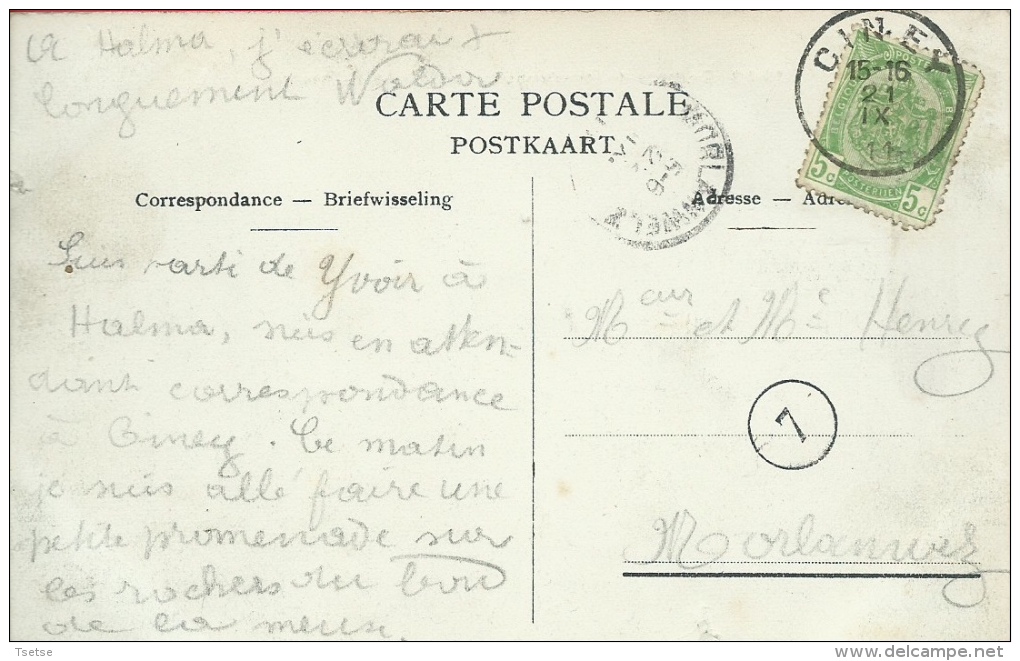 à Halma, j'écrirai +
longuement Waldor
CARTE POSTALE
POSTKAART
Correspondance — Briefwisseling
Adresse — Adre
Suis parti de Yvoir à
Halma, suis en atten-
dant correspondance
à Ciney. Ce matin
je suis allé faire une
petite promenade sur
les rochers du bord
de la meuse.
CINEY
15-16
21
IX
11
5c
5c
POSTERIJEN
MORLANWELZ
Mr et Me Henry
7
Morlanwelz
Tsetse
delcampe.net